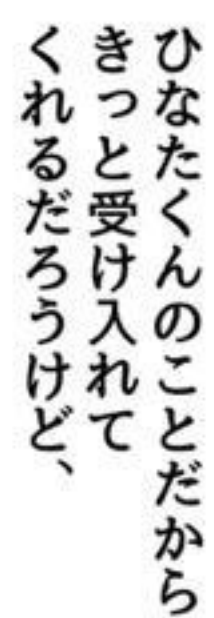 ひなたくんのことだから
きっと受け入れて
くれるだろうけど、